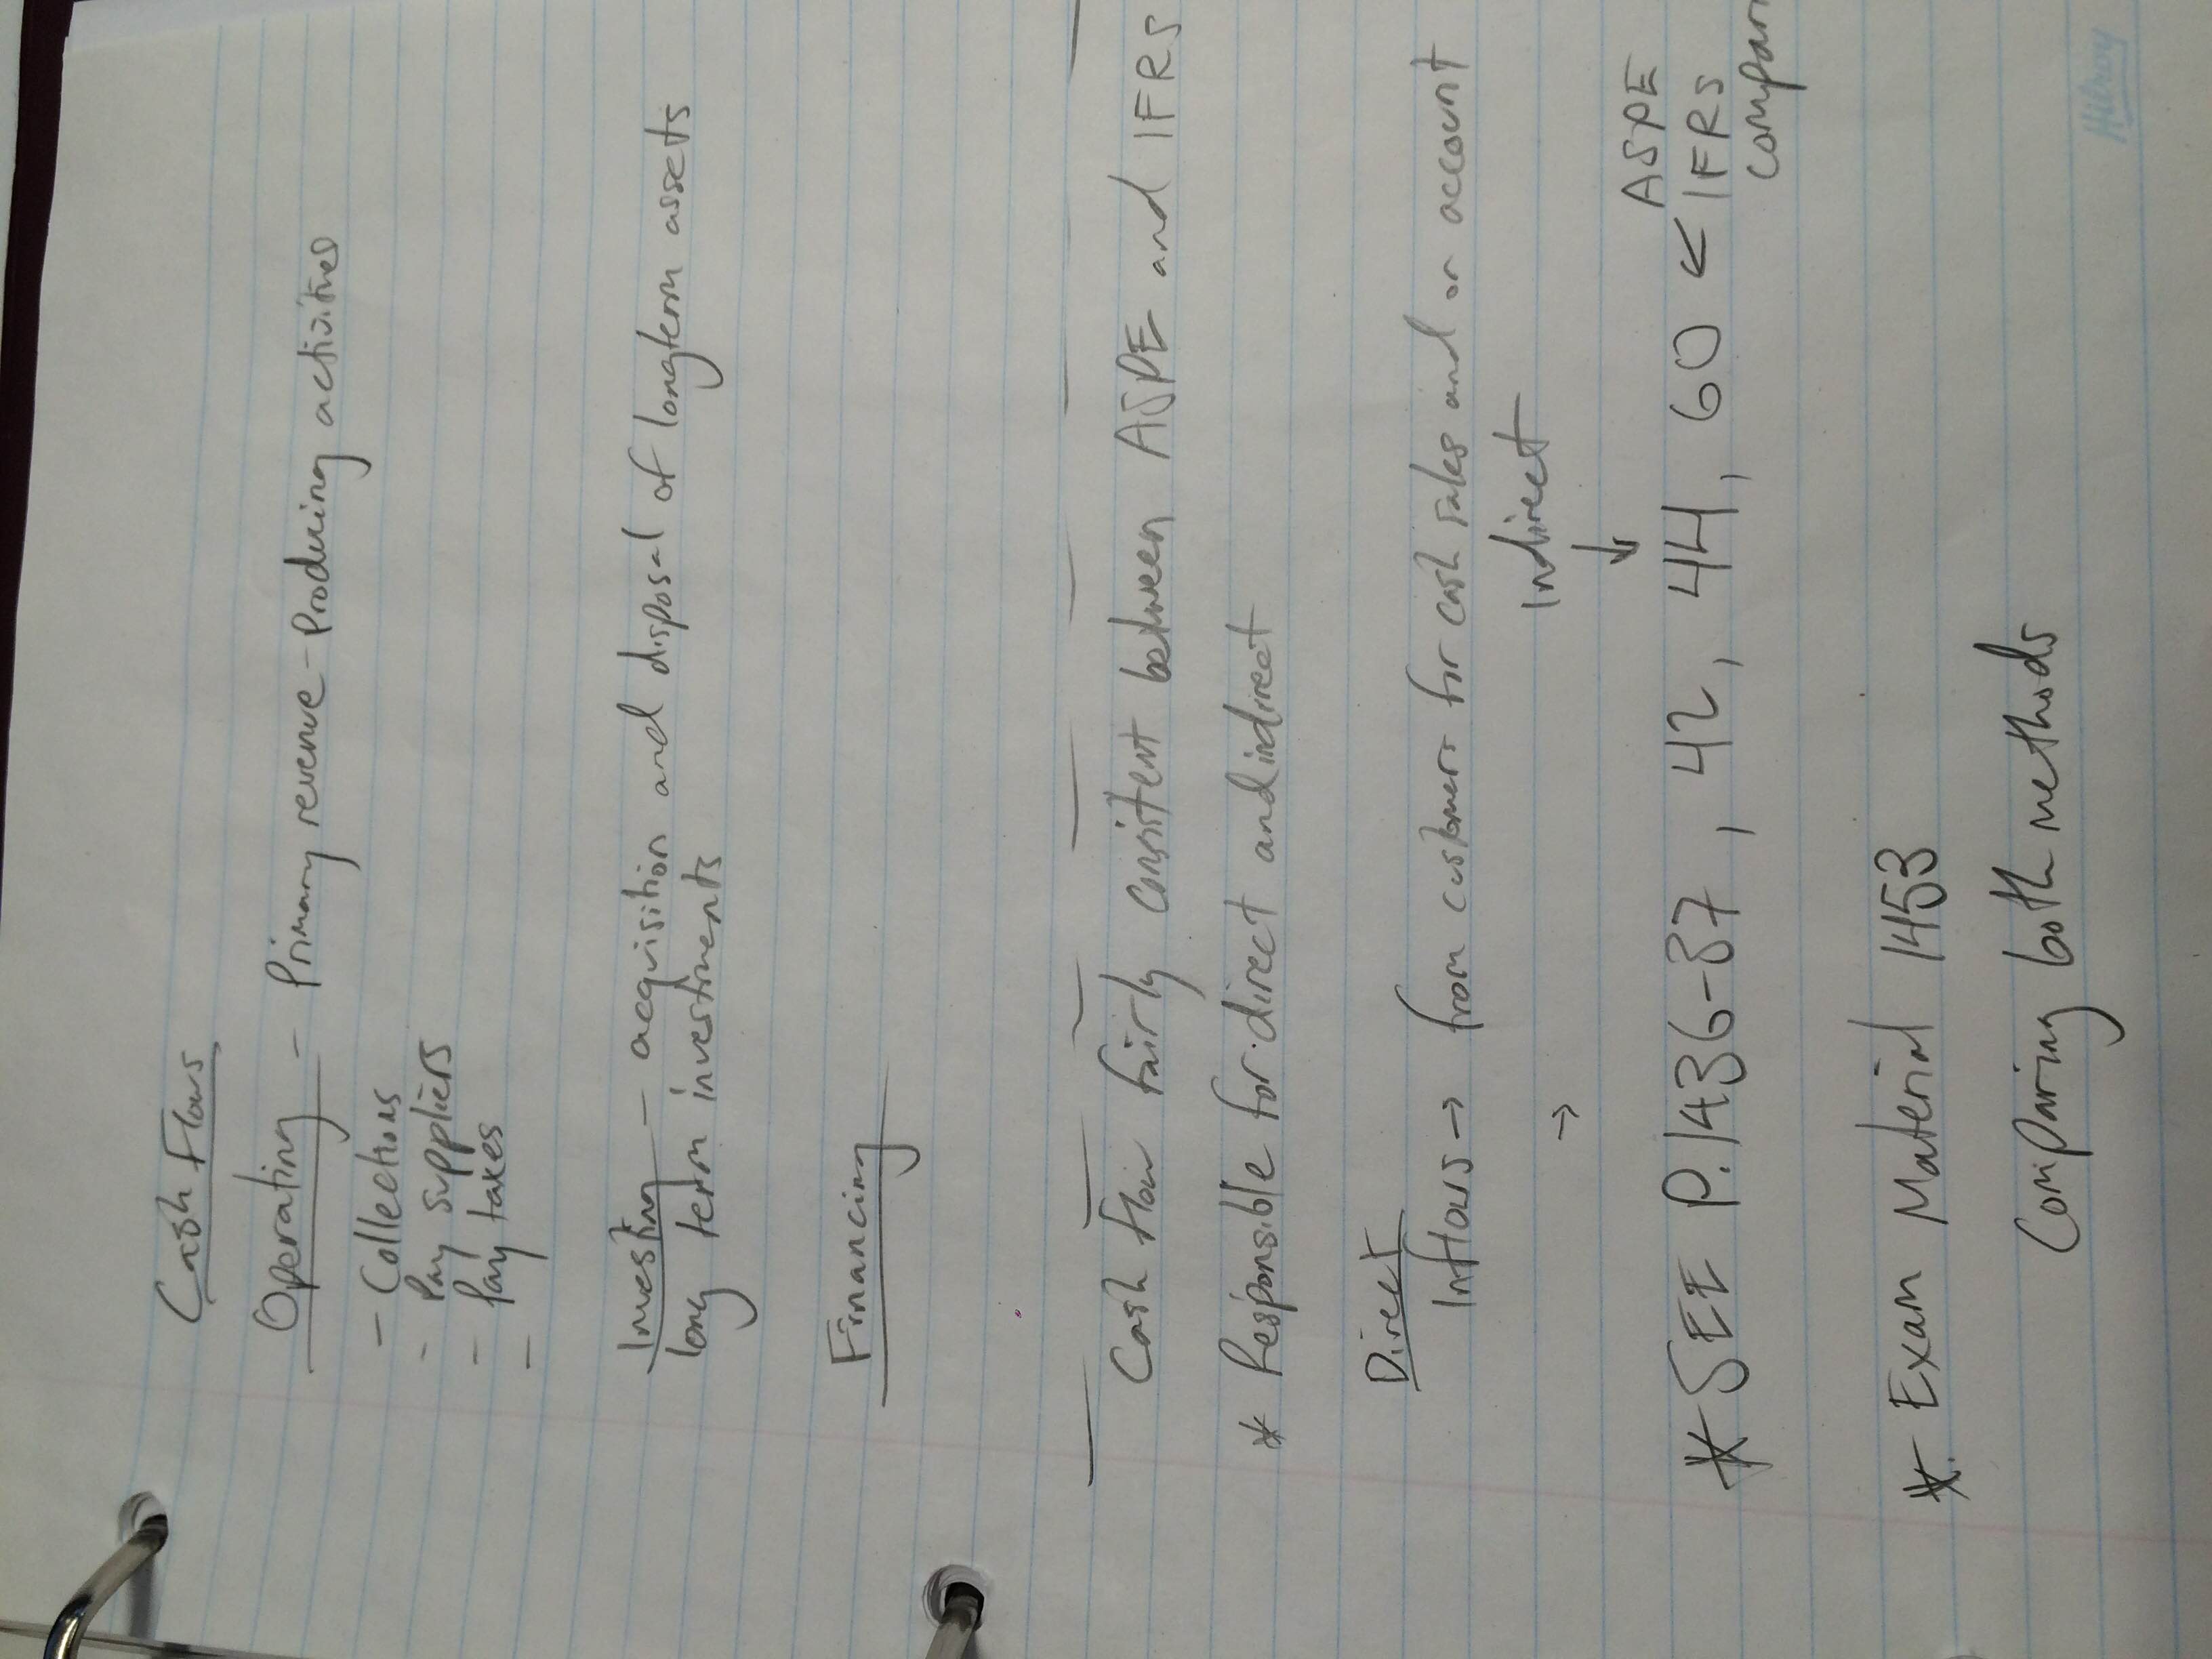 Cash Flows
Operating - Primary revenue-Producing activities
- Collections
- Pay suppliers
- Pay taxes
-
Investing - acquisition and disposal of longterm assets
long term investments
Financing
Cash flow fairly consitent between ASPE and IFRS
* Responsible for direct and indirect
Direct
Inflows → from customers for cash sales and or account
→ Indirect
↓
* SEE P. 1436-37, 42, 44, 60 < ASPE
IFRS
compar
* Exam Material 1453
Comparing both methods
Hilroy